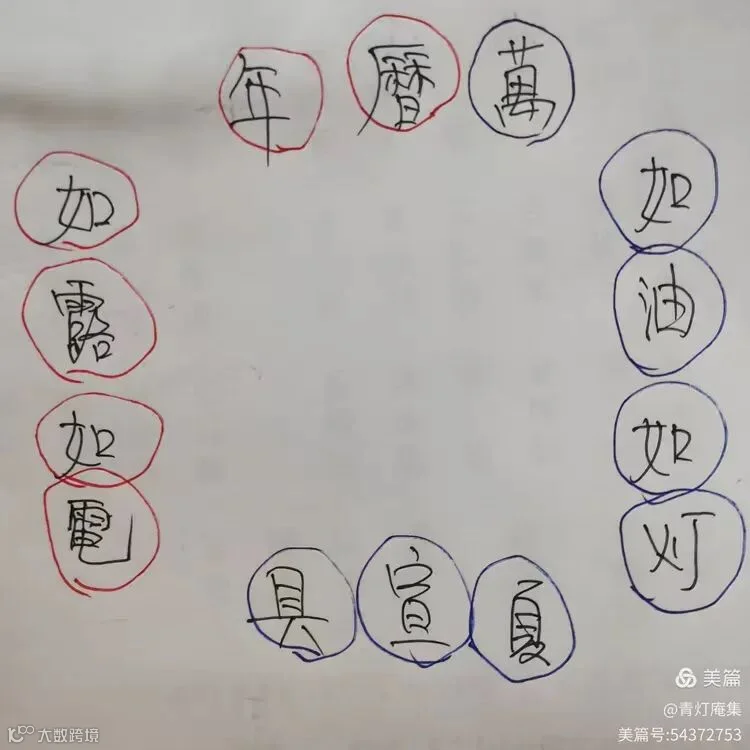 年曆萬
如露如電
如油如灯
具宣夏
美篇
@青灯庵集
美篇号:54372753
大数跨境